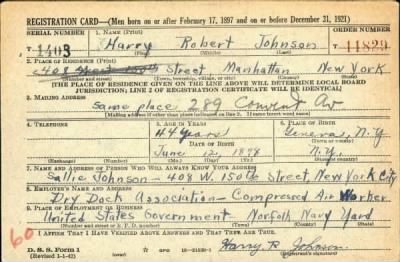 REGISTRATION CARD—(Men born on or after February 17, 1897 and on or before December 31, 1921)
SERIAL NUMBER 1. NAME (Print) ORDER NUMBER
T 1403 Harry Robert Johnson T 11829
(First) (Middle) (Last)
2. PLACE OF RESIDENCE (Print)
408 West 150th Street Manhattan New York
(Number and street) (Town, township, village, or city) (County) (State)
[THE PLACE OF RESIDENCE GIVEN ON THE LINE ABOVE WILL DETERMINE LOCAL BOARD
JURISDICTION; LINE 2 OF REGISTRATION CERTIFICATE WILL BE IDENTICAL]
3. MAILING ADDRESS
Same place 289 Convent Av
[Mailing address if other than place indicated on line 2. If same insert word same]
4. TELEPHONE 5. AGE IN YEARS 6. PLACE OF BIRTH
44 years Geneva, N.Y.
DATE OF BIRTH (Town or county)
June 12, N.Y.
(Exchange) (Number) (Mo.) (Day) (Yr.) (State or country)
7. NAME AND ADDRESS OF PERSON WHO WILL ALWAYS KNOW YOUR ADDRESS
Sallie Johnson - 408 W. 150th Street, New York City
8. EMPLOYER'S NAME AND ADDRESS
Dry Dock Association - Compressed Air Worker
9. PLACE OF EMPLOYMENT OR BUSINESS
United States Government Norfolk Navy Yard
(Number and street or R. F. D. number) (Town) (County) (State)
I AFFIRM THAT I HAVE VERIFIED ABOVE ANSWERS AND THAT THEY ARE TRUE.
60
D. S. S. Form 1
(Revised 1-1-42) (over)
Harry R. Johnson
(Registrant's signature)